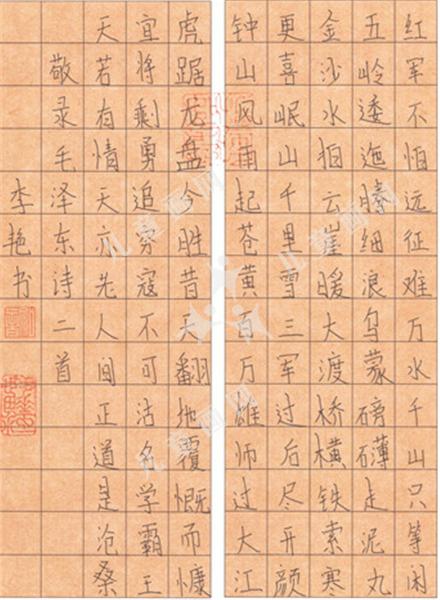 红军不怕远征难万水千山只等闲
五岭逶迤腾细浪乌蒙磅礴走泥丸
金沙水拍云崖暖大渡桥横铁索寒
更喜岷山千里雪三军过后尽开颜
钟山风雨起苍黄百万雄师过大江
虎踞龙盘今胜昔天翻地覆慨而慷
宜将剩勇追穷寇不可沽名学霸王
天若有情天亦老人间正道是沧桑
敬录毛泽东诗二首
李艳书